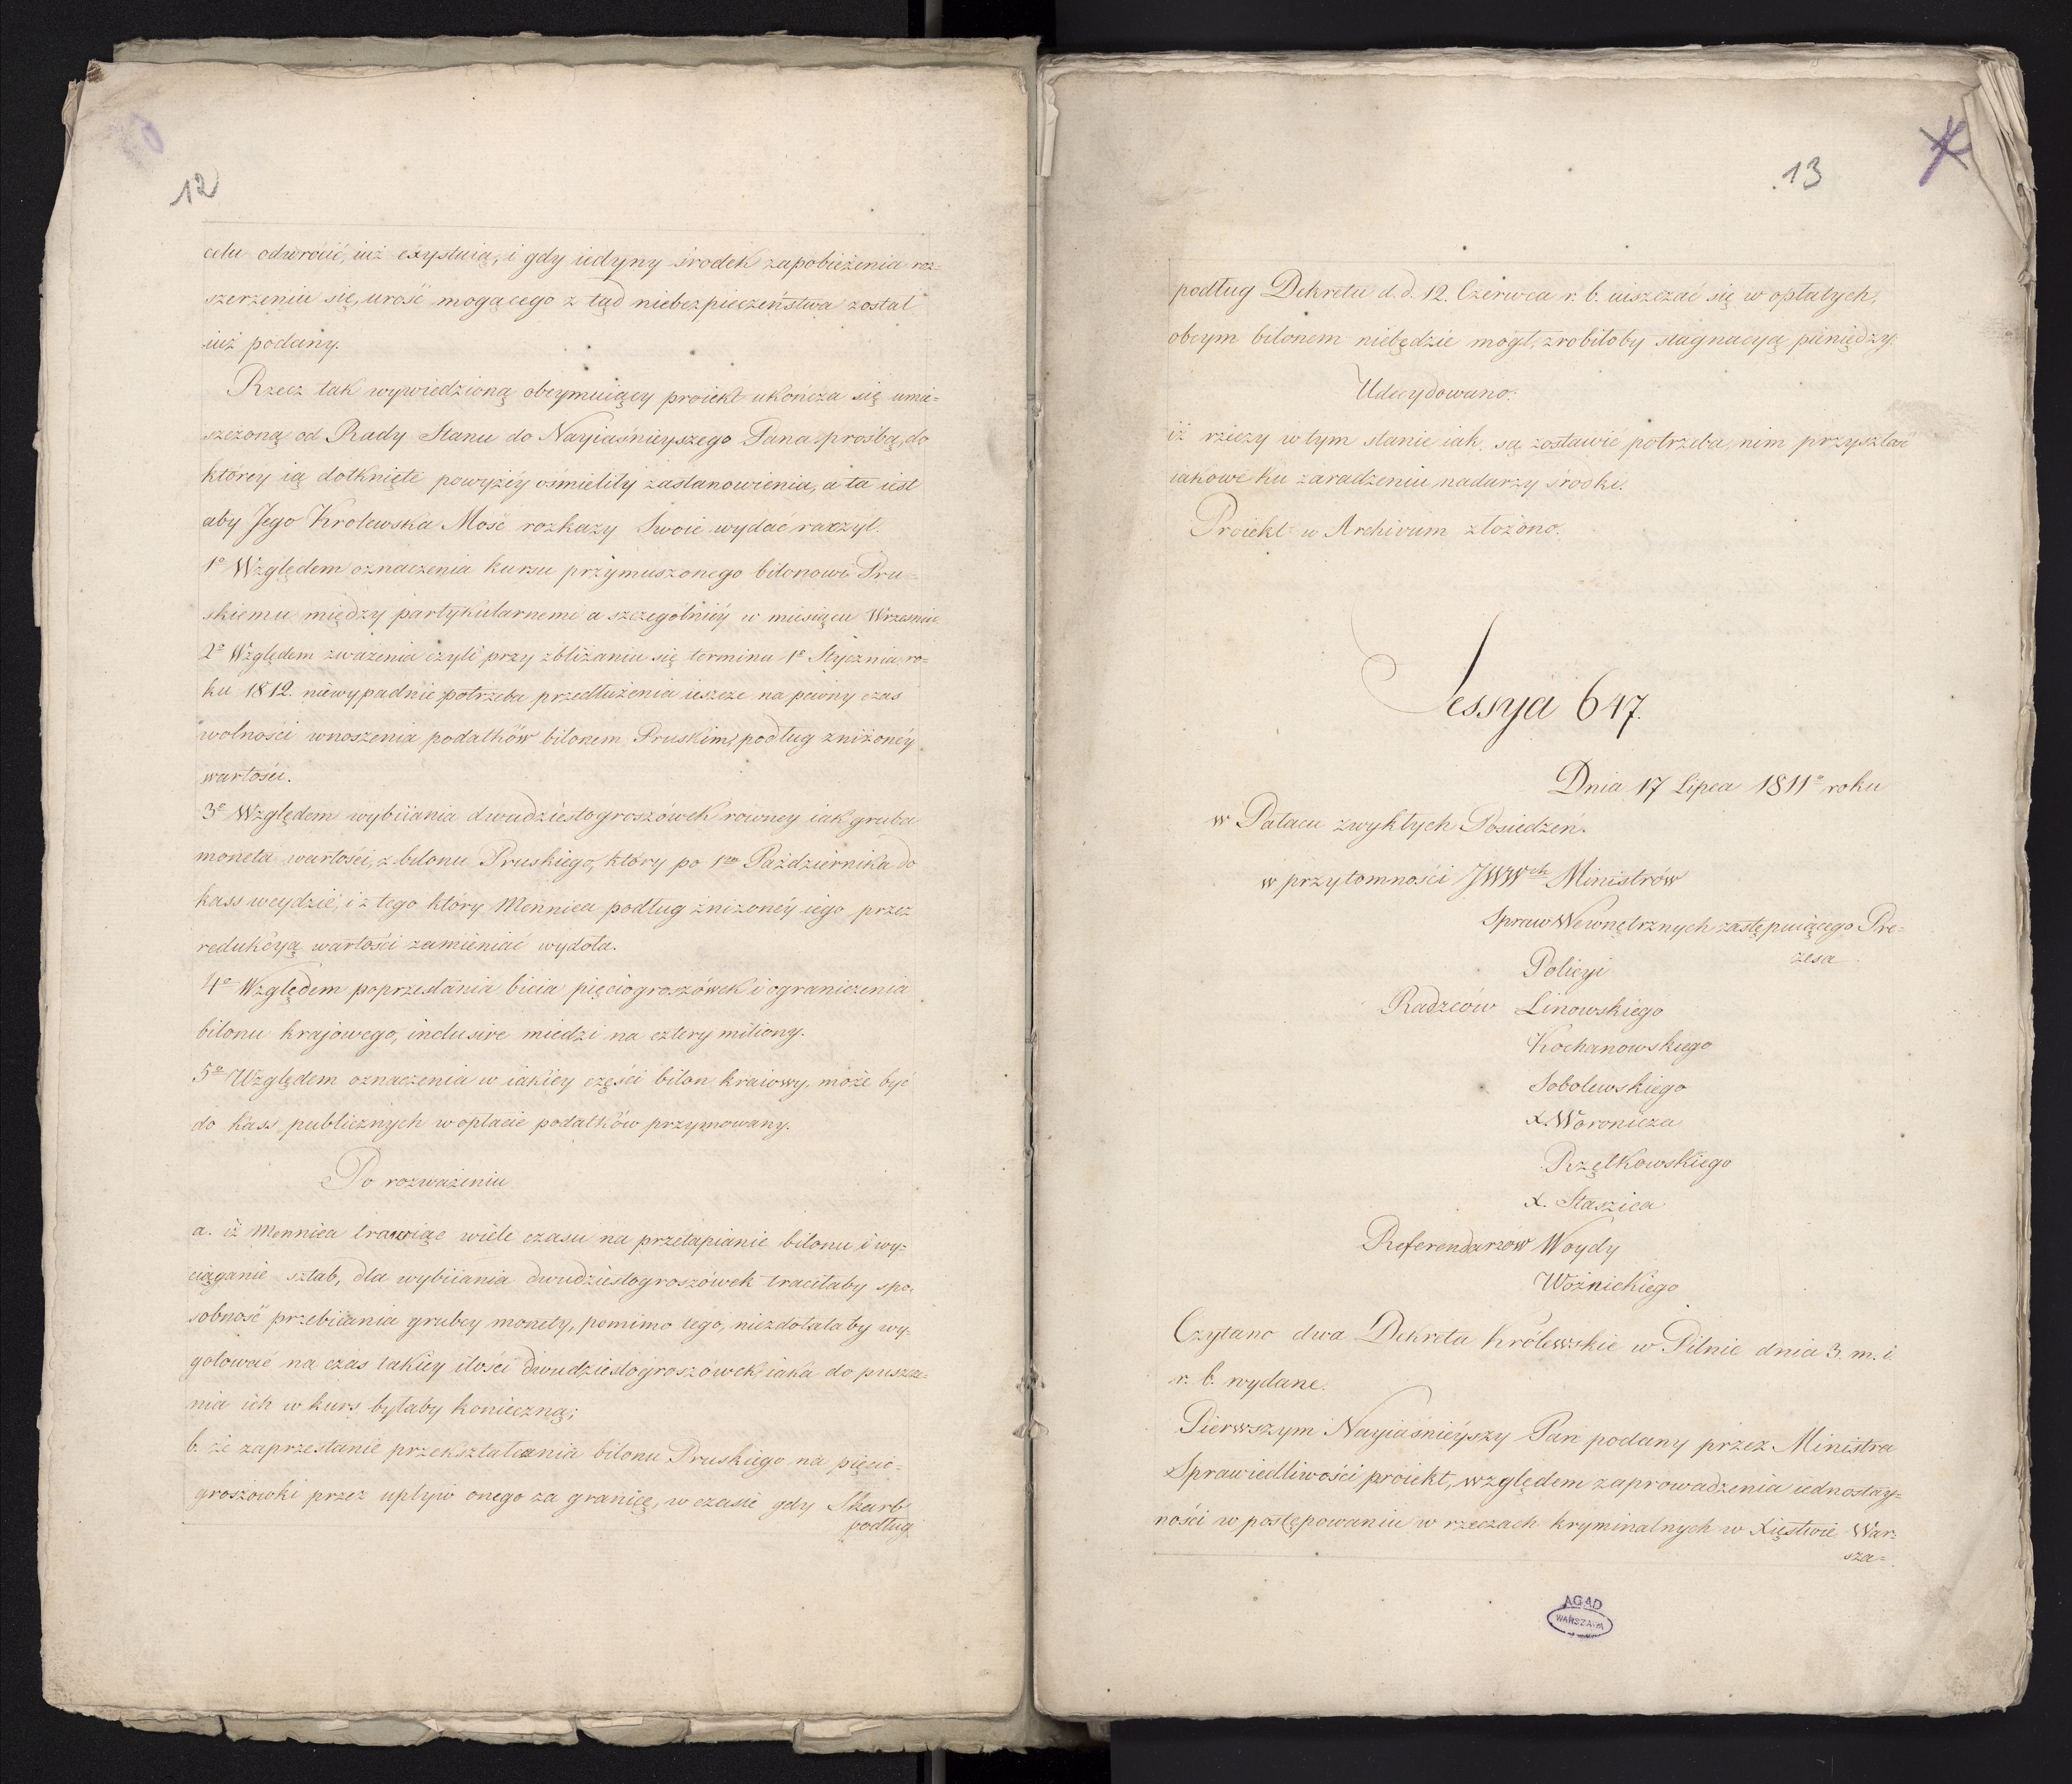 12
celu odwrócić, iuż exystuią, i gdy iedyny środek zapobieżenia roz=
szerzeniu się, urość mogącego z tąd niebezpieczeństwa został
iuż podany.
Rzecz tak wywiedzioną obeymuiący proiekt ukończa się umie=
szczoną od Rady Stanu do Nayiaśnieyszego Pana prośbą, do
którey ią dotknięte powyżéy ośmieliły zastanowienia, a ta iest
aby Jego Królewska Mość rozkazy Swoie wydać raczył.
1º Względem oznaczenia kursu przymuszonego bilonowi Pru=
skiemu między partykularnemi a szczególniéy w miesiącu Wrześniu
2º Względem zważenia czyli przy zbliżaniu się terminu 1º Stycznia ro=
ku 1812. niewypadnie potrzeba przedłużenia ieszcze na pewny czas
wolności wnoszenia podatków bilonem Pruskim, podług zniżonéy
wartości.
3º Względem wybiiania dwudziestogroszówek równey iak gruba
moneta wartości, z bilonu Pruskiego, który po 1ym Października do
kass weydzie, i z tego który Mennica podług zniżonéy iego przez
redukcyą wartości zamieniać wydoła.
4º Względem poprzestania bicia pięciogroszówek i ograniczenia
bilonu krajowego, inclusive miedzi na cztery miliony.
5º Względem oznaczenia w iakiéy części bilon kraiowy, może być
do kass publicznych w opłacie podatków przyjmowany.
Po rozważeniu
a. iż Mennica trawiąc wiele czasu na przetapianie bilonu i wy=
ciąganie sztab, dla wybiiania dwudziestogroszówek traciłaby spo=
sobność przebiiania grubey monety, pomimo tego, niezdołałaby wy=
gotować na czas takiey ilości dwudziestogroszówek, iaka do puszcze=
nia ich w kurs byłaby konieczną;
b. że zaprzestanie przekształcania bilonu Pruskiego na pięcio=
groszówki przez upływ onego za granicę, w czasie gdy Skarb
podług
13
podług Dekretu d. d. 12. Czerwca r. b. uiszczać się w opłatych,
obcym bilonem niebędzie mógł, zrobiłoby stagnacyą pieniędzy.
Udecydowano:
iż rzeczy w tym stanie iak są, zostawić potrzeba, nim przyszłość
iakowe ku zaradzeniu nadarzy środki.
Proiekt w Archivum złożono.
Sessya 647.
Dnia 17 Lipca 1811º roku
w Pałacu zwykłych Posiedzeń.
w przytomności JWWch Ministrów
Spraw Wewnętrznych zastępuiącego Pre=
zesa
Policyi
Radzców Linowskiego
Kochanowskiego
Sobolewskiego
X. Woronicza
Rzętkowskiego
X. Staszica
Referendarzów Woydy
Woźnickiego
Czytano dwa Dekreta Królewskie w Pilnie dnia 3. m. i
r. b. wydane.
Pierwszym Nayiaśnieyszy Pan podany przez Ministra
Sprawiedliwości proiekt, względem zaprowadzenia iednostay=
ności w postępowaniu w rzeczach kryminalnych w Xięstwie War=
sza=
AGAD
WARSZAWA